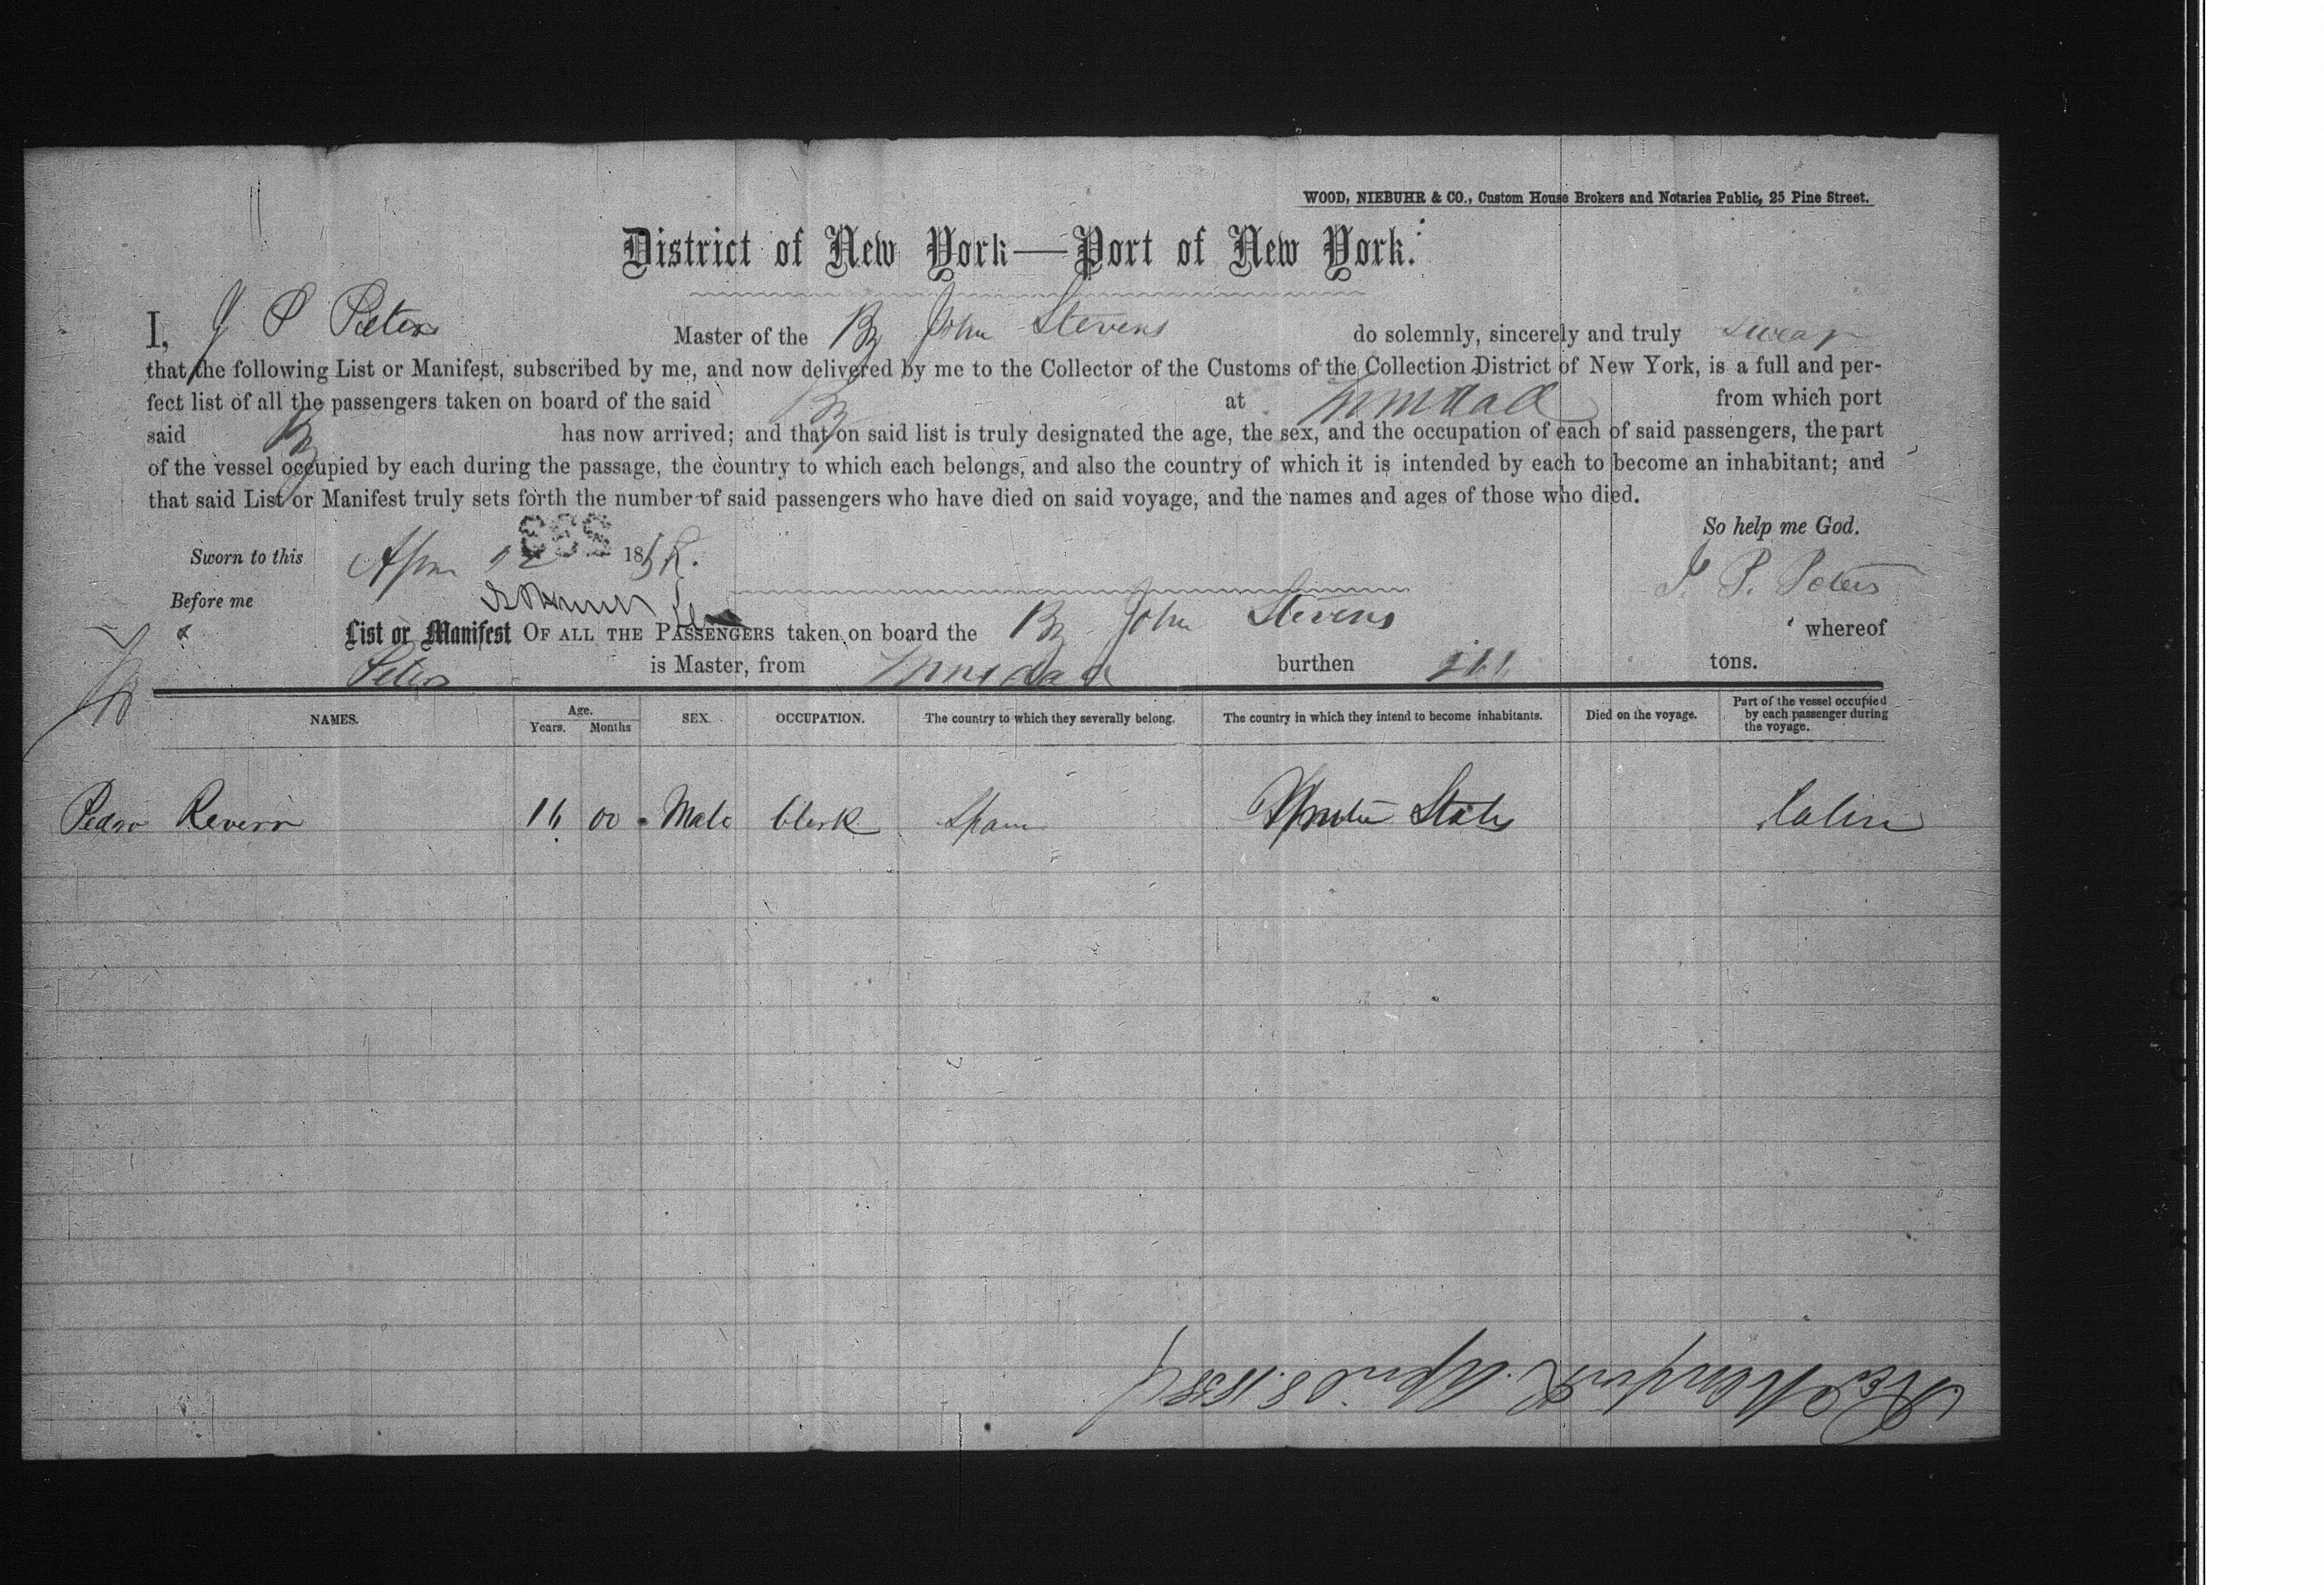 WOOD, NIEBUHR & CO., Custom House Brokers and Notaries Public, 25 Pine Street.
District of New York—Port of New York.
I, J P Peters Master of the Bg John Stevens do solemnly, sincerely and truly swear
that the following List or Manifest, subscribed by me, and now delivered by me to the Collector of the Customs of the Collection District of New York, is a full and per-
fect list of all the passengers taken on board of the said Bg at Trinidad from which port
said Bg has now arrived; and that on said list is truly designated the age, the sex, and the occupation of each of said passengers, the part
of the vessel occupied by each during the passage, the country to which each belongs, and also the country of which it is intended by each to become an inhabitant; and
that said List or Manifest truly sets forth the number of said passengers who have died on said voyage, and the names and ages of those who died.
So help me God.
Sworn to this 1858.
J. P. Peters
Before me
List or Manifest OF ALL THE PASSENGERS taken on board the Bg John Stevens whereof
Peters is Master, from Trinidad burthen tons.
NAMES. Age. Years. Months SEX. OCCUPATION. The country to which they severally belong. The country in which they intend to become inhabitants. Died on the voyage. Part of the vessel occupied by each passenger during the voyage.
Pedro 16 00 Male Clerk Spain United States Cabin